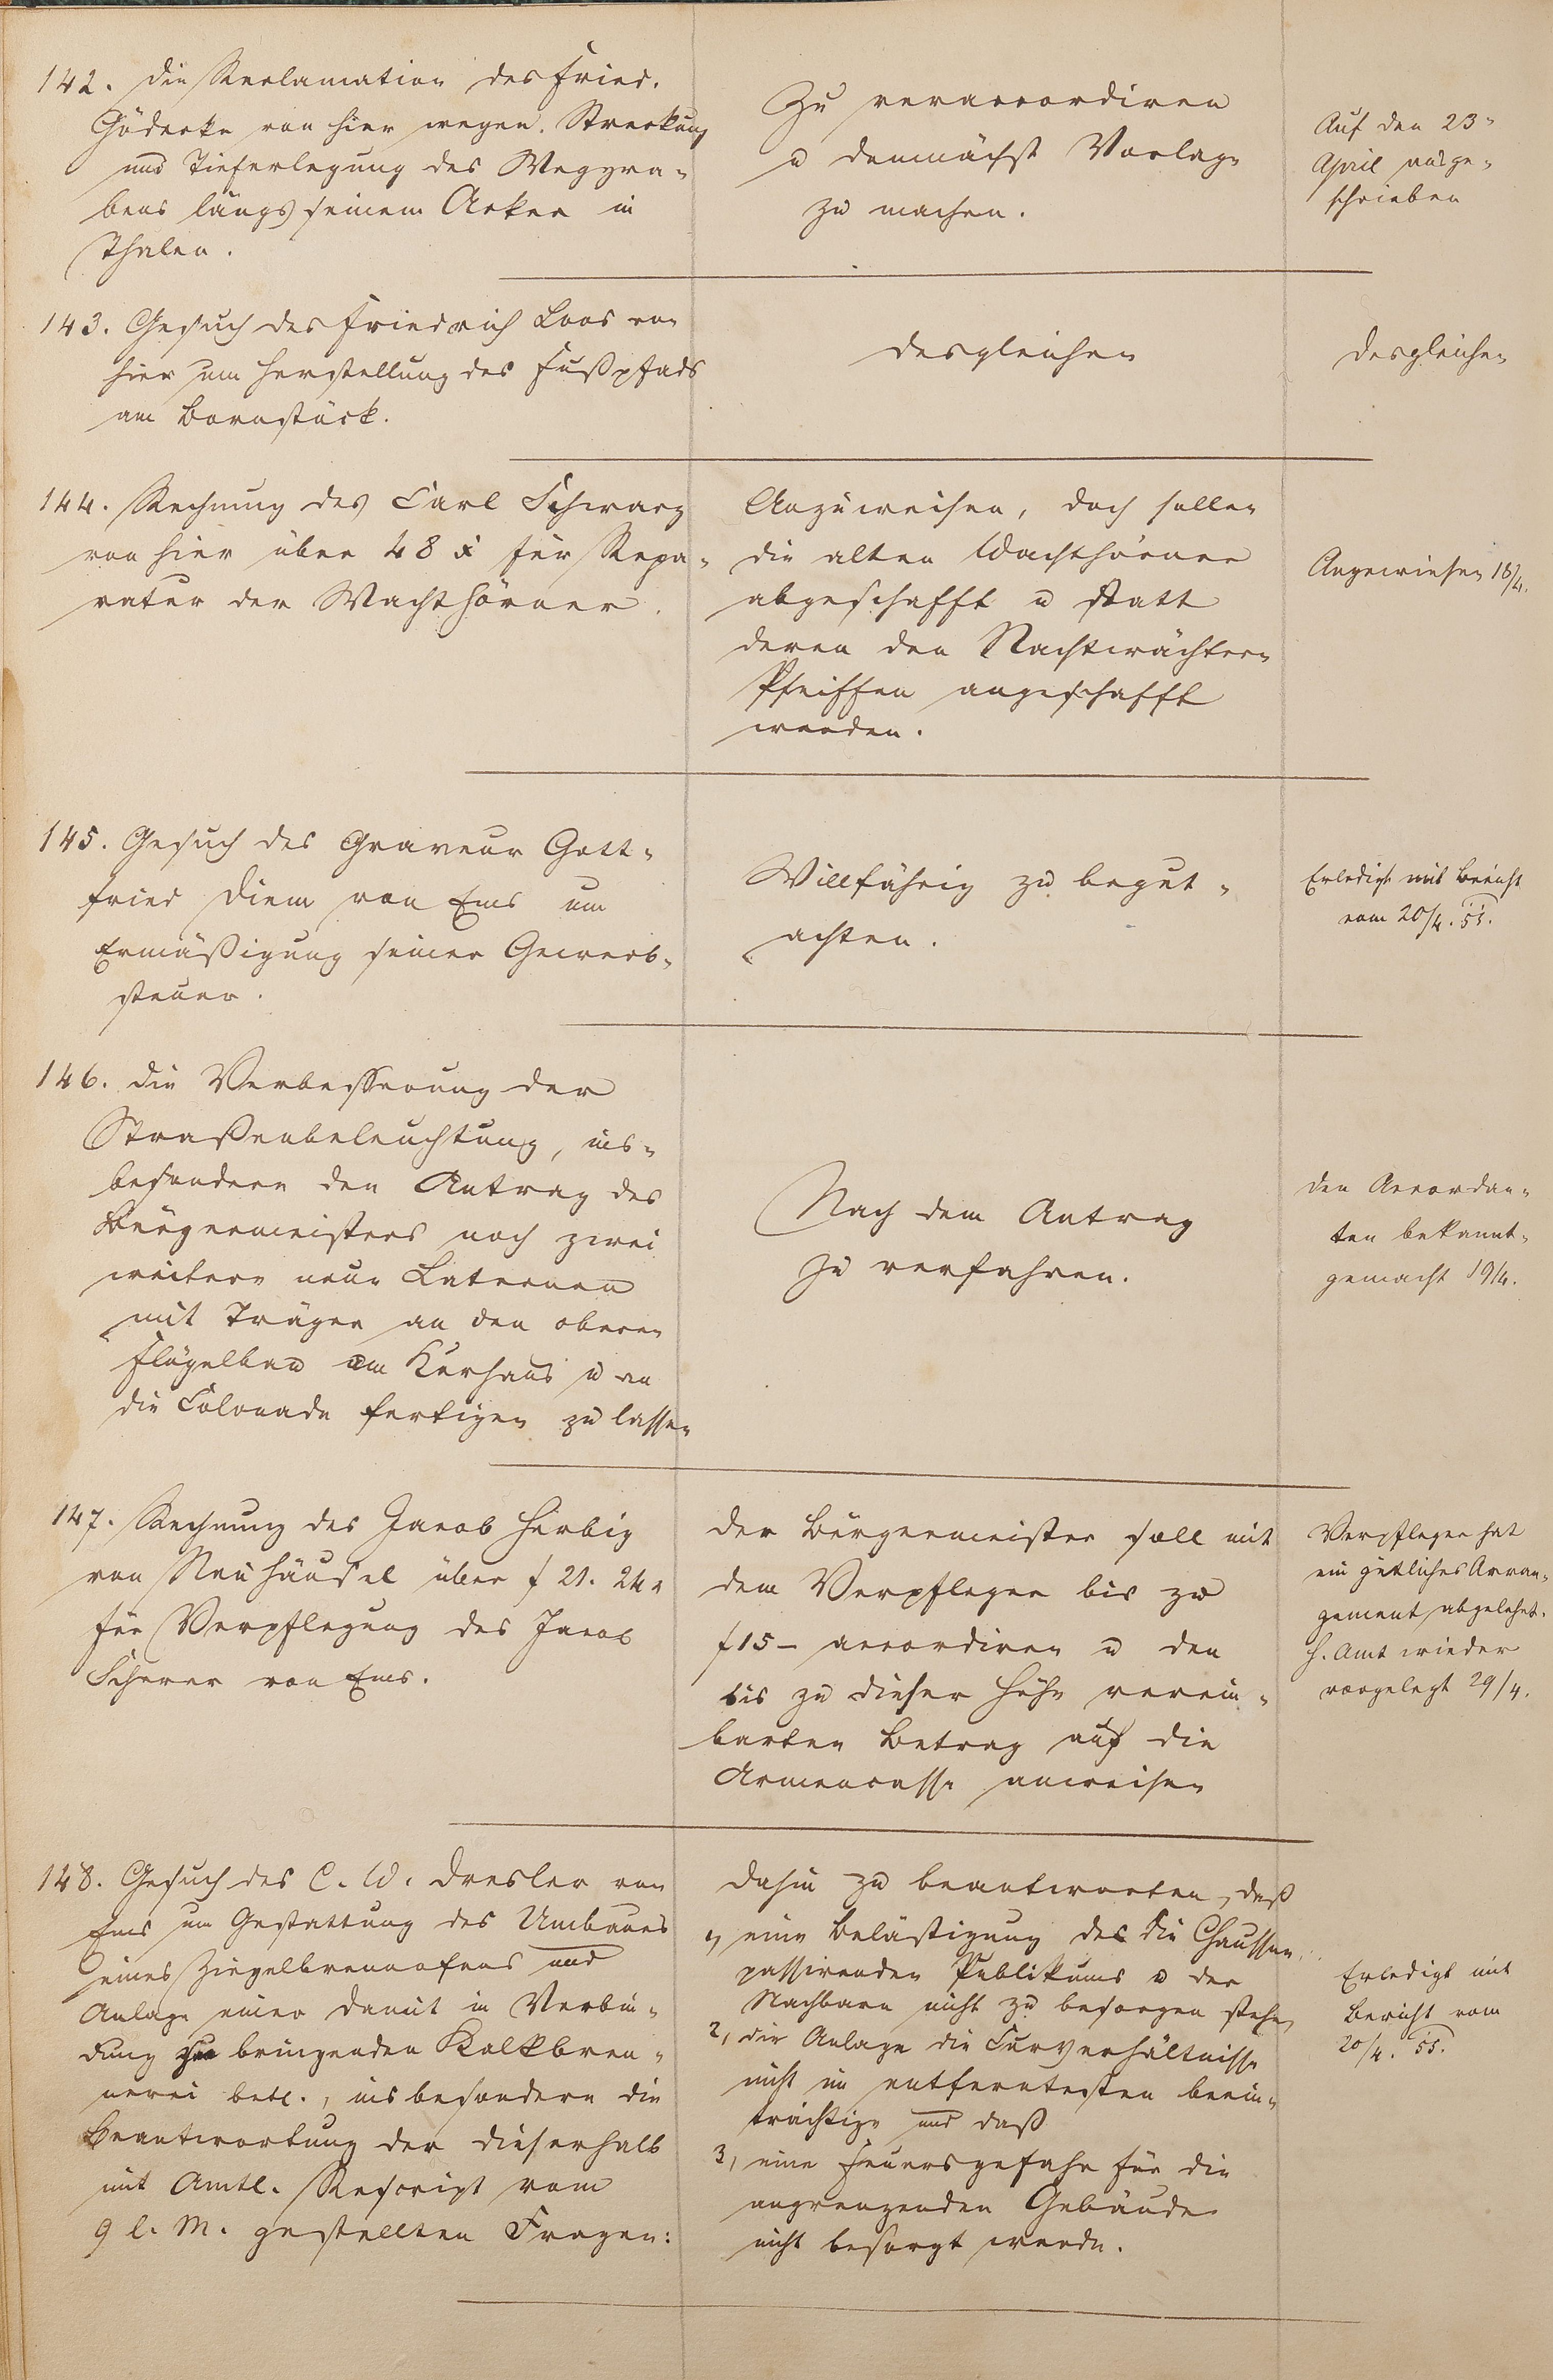 142. Die Reclamation des Fried.
Gödecke von hier wegen Streckung
und Tieferlegung des Weggra-
bens längs seinem Acker in
Thalen.
Zu veraccordiren
u demnächst Vorlage
zu machen.
Auf den 23-
April ausge-
schrieben
143. Gesuch des Friedrich Loos von
hier um Herstellung des Fußpfads
am Bornstück.
desgleichen
desgleichen
144. Rechnung des Carl Schwarz
von hier über 48 x für Repa-
ratur der Wachthörner.
Anzuweisen, doch sollen
die alten Wachthörner
abgeschafft u statt
deren den Nachtwächtern
Pfeiffen angeschafft
werden.
Angewiesen 18/4.
145. Gesuch des Graveur Gott-
fried Diem von Ems um
Ermäßigung seiner Gewerb-
steuer.
Willfährig zu begut-
achten.
Erledigt mit Bericht
vom 20/4. 55.
146. Die Verbesserung der
Straßenbeleuchtung, ins-
besondere den Antrag des
Bürgermeisters noch zwei
weitere neue Laternen
mit Träger an den oberen
Flügelbau am Kurhaus u an
die Colonade fertigen zu lassen
Nach dem Antrag
zu verfahren.
Den Accordan-
ten bekannt-
gemacht 19/4.
147. Rechnung des Jacob Herbig
von Neuhäusel über f 21. 24 x
für Verpflegung des Jacob
Scherer von Ems.
Der Bürgermeister soll mit
dem Verpfleger bis zu
f 15 - accordiren u den
bis zu dieser Höhe verein-
barten Betrag auf die
Armencasse anweisen
Verpfleger hat
ein gütliches Arran-
gement abgelehnt.
H. Amt wieder
vorgelegt 29/4.
148. Gesuch des C. W. Dresler von
Ems um Gestattung des Umbaues
eines Ziegelbrennofens und
Anlage einer damit in Verbin-
dung zu bringenden Kalkbren-
nerei betr., insbesondere die
Beantwortung der dieserhalb
mit Amtl. Rescript vom
9 l. M. gestellten Fragen:
Dahin zu beantworten, daß
1, eine Belästigung des die Chaussee
passirenden Publikums u der
Nachbarn nicht zu besorgen stehe,
2, die Anlage die Curverhältnisse
nicht im entferntesten beein-
trächtige und daß
3, eine Feuersgefahr für die
angrenzenden Gebäude
nicht besorgt werde.
Erledigt mit
Bericht vom
20/4. 55.